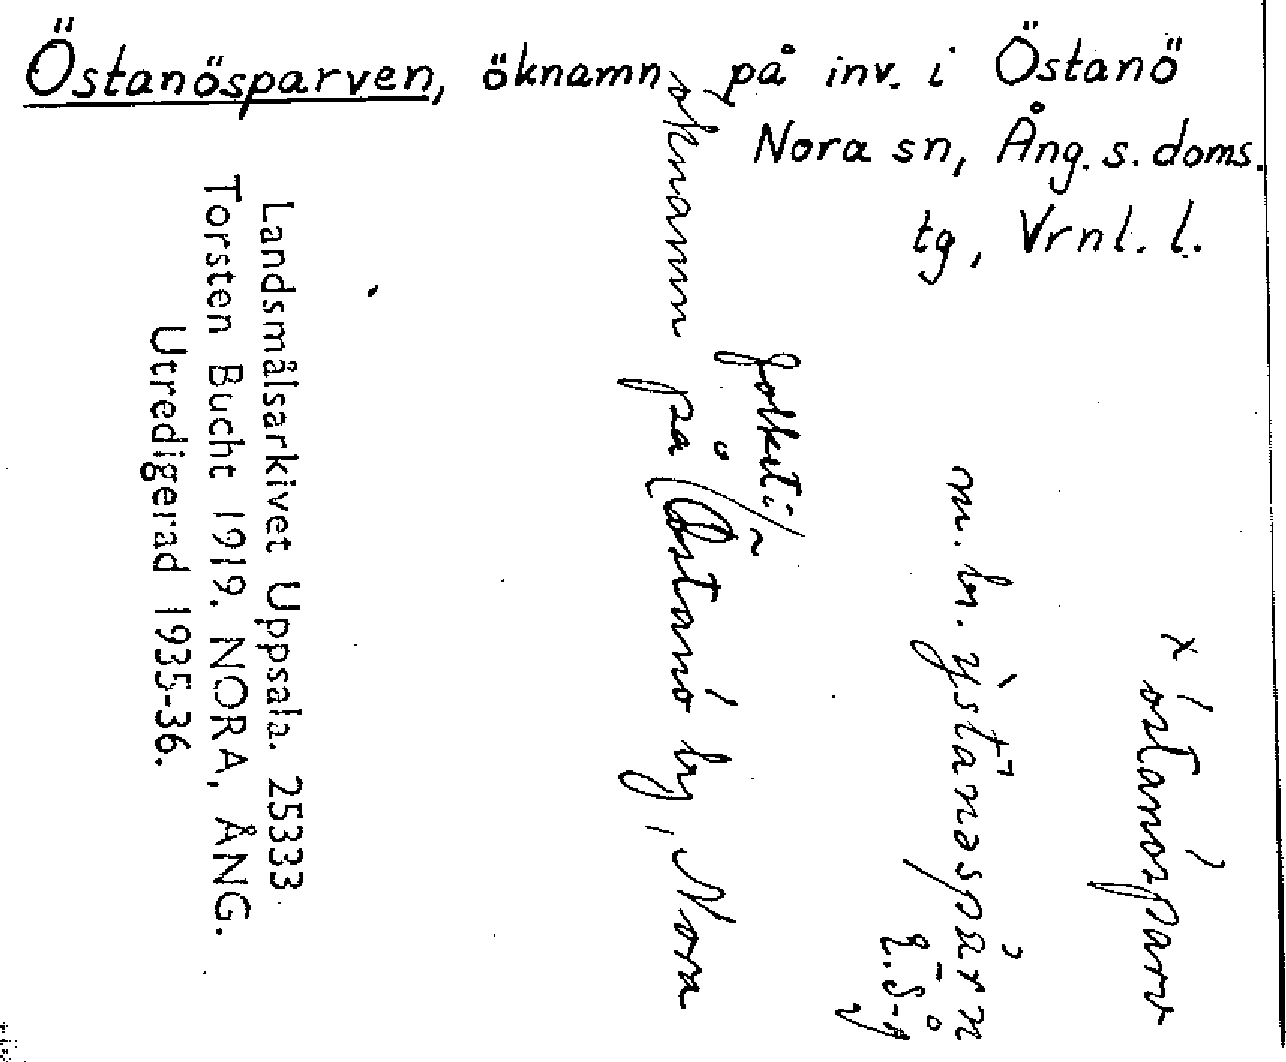 Östanösparven, öknamn på inv. i Östanö
Nora sn, Ång. s. doms.
tg, Vrnl. l.
× östanösparv
m. bn.
öknamn på folket i Östanö by, Nora
Landsmålsarkivet Uppsala. 25333.
Torsten Bucht 1919. NORA, ÅNG.
Utredigerad 1935-36.